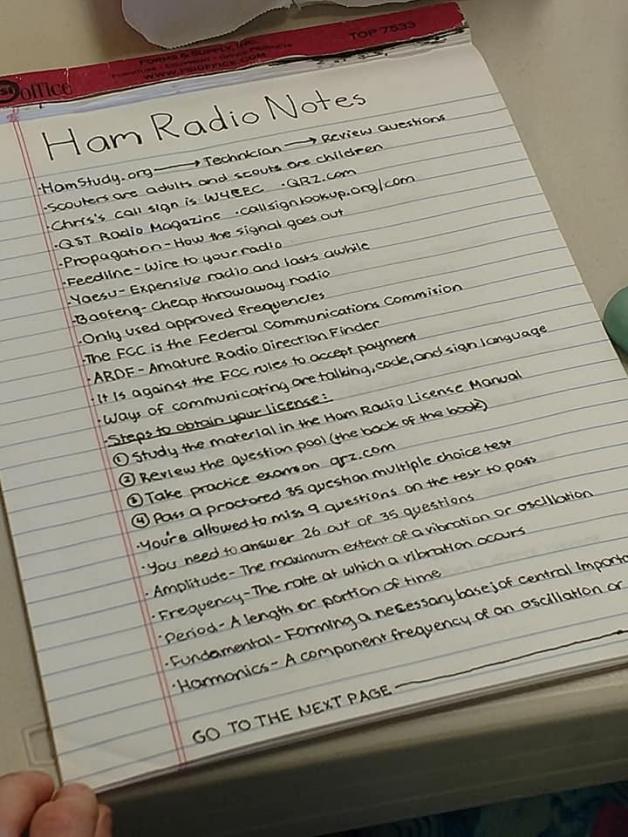 office
FORMS & SUPPLY, INC.
WWW.FSIOFFICE.COM
TOP 7533
Ham Radio Notes
·HamStudy.org → Technician → Review Questions
·Scouters are adults and scouts are children
·Chris's call sign is W4EEC ·QRZ.com
·QST Radio Magazine ·callsignlookup.org/com
·Propagation- How the signal goes out
·Feedline- Wire to your radio
·Yaesu- Expensive radio and lasts awhile
·Baofeng- Cheap throwaway radio
·Only used approved frequencies
·The FCC is the Federal Communications Commision
·ARDF- Amature Radio Direction Finder
·It is against the FCC rules to accept payment
·Ways of communicating are talking, code, and sign language
·Steps to obtain your license:
① Study the material in the Ham Radio License Manual
② Review the question pool (the back of the book)
③ Take practice exams on qrz.com
④ Pass a proctored 35 question multiple choice test
·You're allowed to miss 9 questions on the test to pass
·You need to answer 26 out of 35 questions
·Amplitude- The maximum extent of a vibration or oscillation
·Frequency- The rate at which a vibration occurs
·Period- A length or portion of time
·Fundamental- Forming a necessary base; of central Importa
·Harmonics- A component frequency of an oscillation or
GO TO THE NEXT PAGE